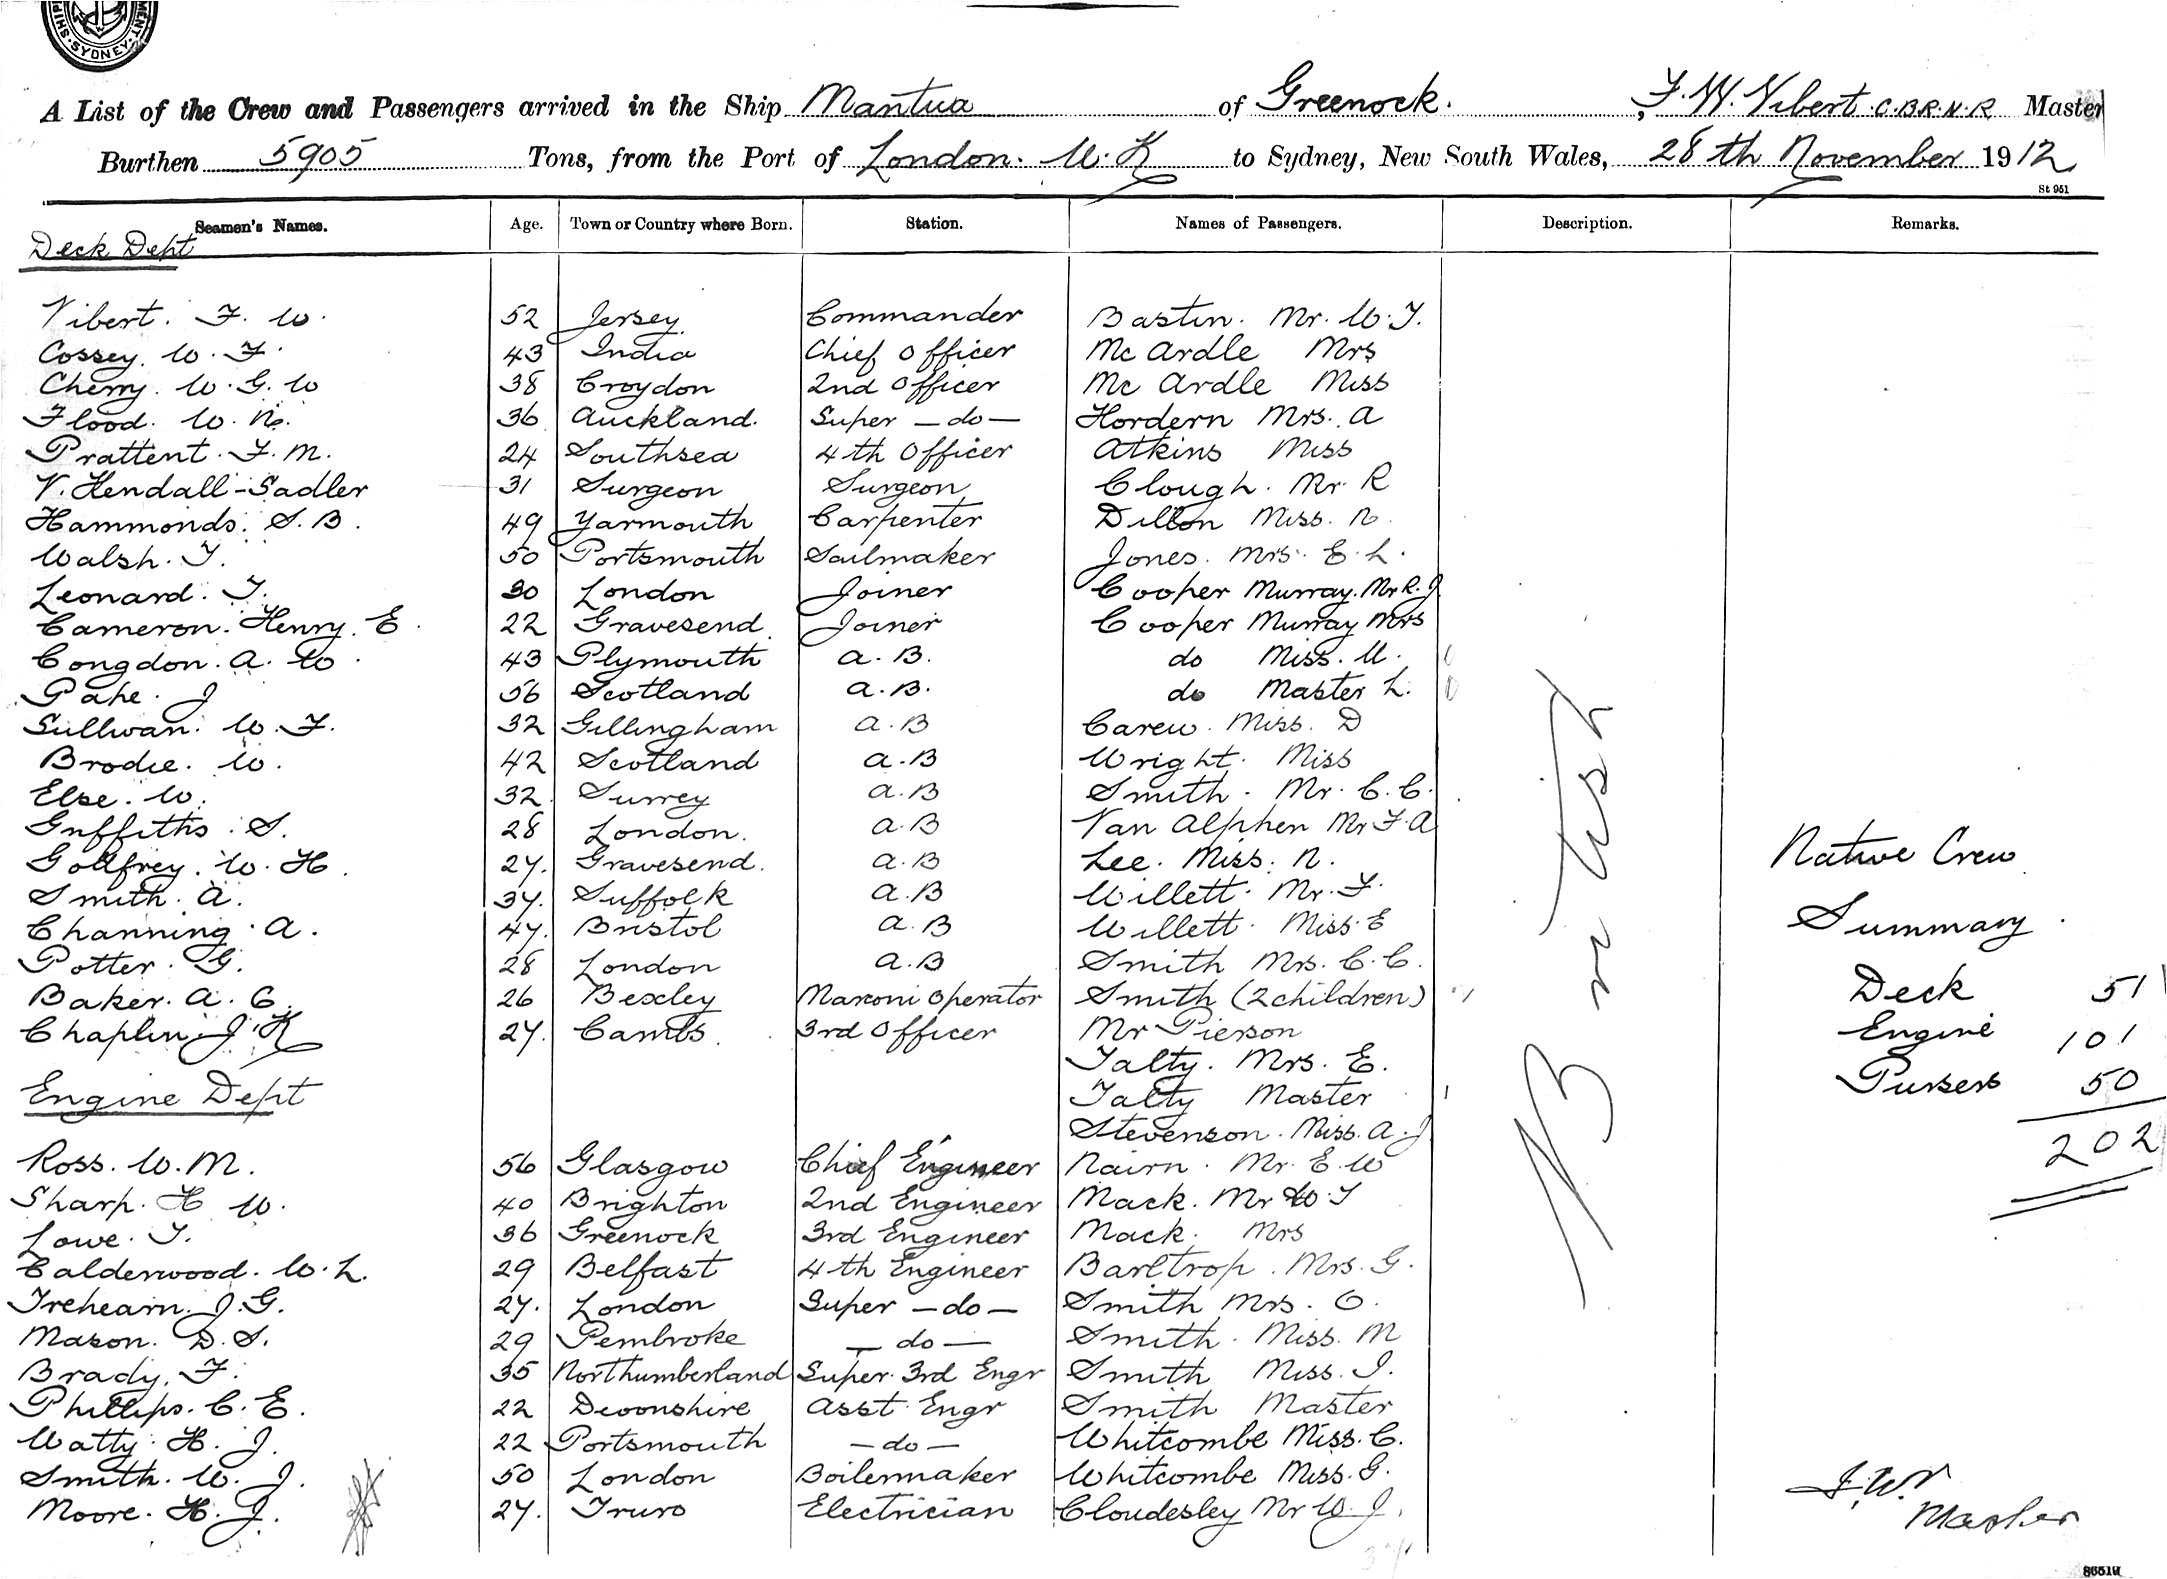 SHIP MENT · SYDNEY ·
A List of the Crew and Passengers arrived in the Ship Mantua of Greenock. , F. W. Vibert. C.B.R.N.R Master
Burthen 5905 Tons, from the Port of London. U.K to Sydney, New South Wales, 28th November 1912
St 951
Seamen's Names. Age. Town or Country where Born. Station. Names of Passengers. Description. Remarks.
Deck Dept
Vibert. F. W. 52 Jersey Commander Bastin. Mr. W. T.
Cossey. W. F. 43 India Chief Officer Mc Ardle Mrs
Cherry. W. G. W 38 Croydon 2nd Officer Mc Ardle Miss
Flood. W. N. 36 Auckland. Super — do — Hordern Mrs. A
Prattent. F. M. 24 Southsea 4th Officer Atkins Miss
V. Hendall-Sadler 31 Surgeon Surgeon Clough. Mr. R
Hammonds. S. B. 49 Yarmouth Carpenter Dillon Miss. N.
Walsh. T. 50 Portsmouth Sailmaker Jones. Mrs. E. L.
Leonard. T. 30 London Joiner Cooper Murray. Mr R. J
Cameron. Henry. E. 22 Gravesend Joiner Cooper Murray Mrs
Congdon. A. W. 43 Plymouth A. B. do Miss. U.
Pahe. J 56 Scotland A. B. do Master L.
Sullivan. W. F. 32 Gillingham A. B Carew. Miss. D
Brodie. W. 42 Scotland A. B Wright. Miss
Else. W. 32 Surrey A. B Smith. Mr. C. C.
Griffiths. S. 28 London. A. B Van Alphen Mr F. A
Gollfrey. W. H. 27. Gravesend. A. B Lee. Miss. N.
Smith. A. 37. Suffolk A. B Willett. Mr. F.
Channing. A. 47. Bristol A. B Willett. Miss. E
Potter. G. 28 London A. B Smith Mrs. C. C.
Baker. A. C. 26 Bexley Marconi Operator Smith (2 children)
Chaplin. J. K 27. Cambs. 3rd Officer Mr Pierson
Talty. Mrs. E.
Engine Dept Talty Master
Stevenson. Miss. A. J
Ross. W. M. 56 Glasgow Chief Engineer Nairn. Mr. E. W
Sharp. H W. 40 Brighton 2nd Engineer Mack. Mr W. T
Lowe. T. 36 Greenock 3rd Engineer Mack. Mrs
Calderwood. W. L. 29 Belfast 4th Engineer Barltrop. Mrs. G.
Trehearn. J. G. 27. London Super — do — Smith Mrs. O.
Mason. D. S. 29 Pembroke — do — Smith. Miss. M
Brady. F. 35 Northumberland Super. 3rd Engr Smith Miss. I.
Phillips. C. E. 22 Devonshire Asst. Engr Smith Master
Watty. H. J. 22 Portsmouth — do — Whitcombe Miss. C.
Smith. W. J. 50 London Boilermaker Whitcombe Miss. G.
Moore. H. J. 27. Truro Electrician Cloudesley Mr W. J.
British
Native Crew
Summary.
Deck 51
Engine 101
Pursers 50
202
F. W. V
Master
86519